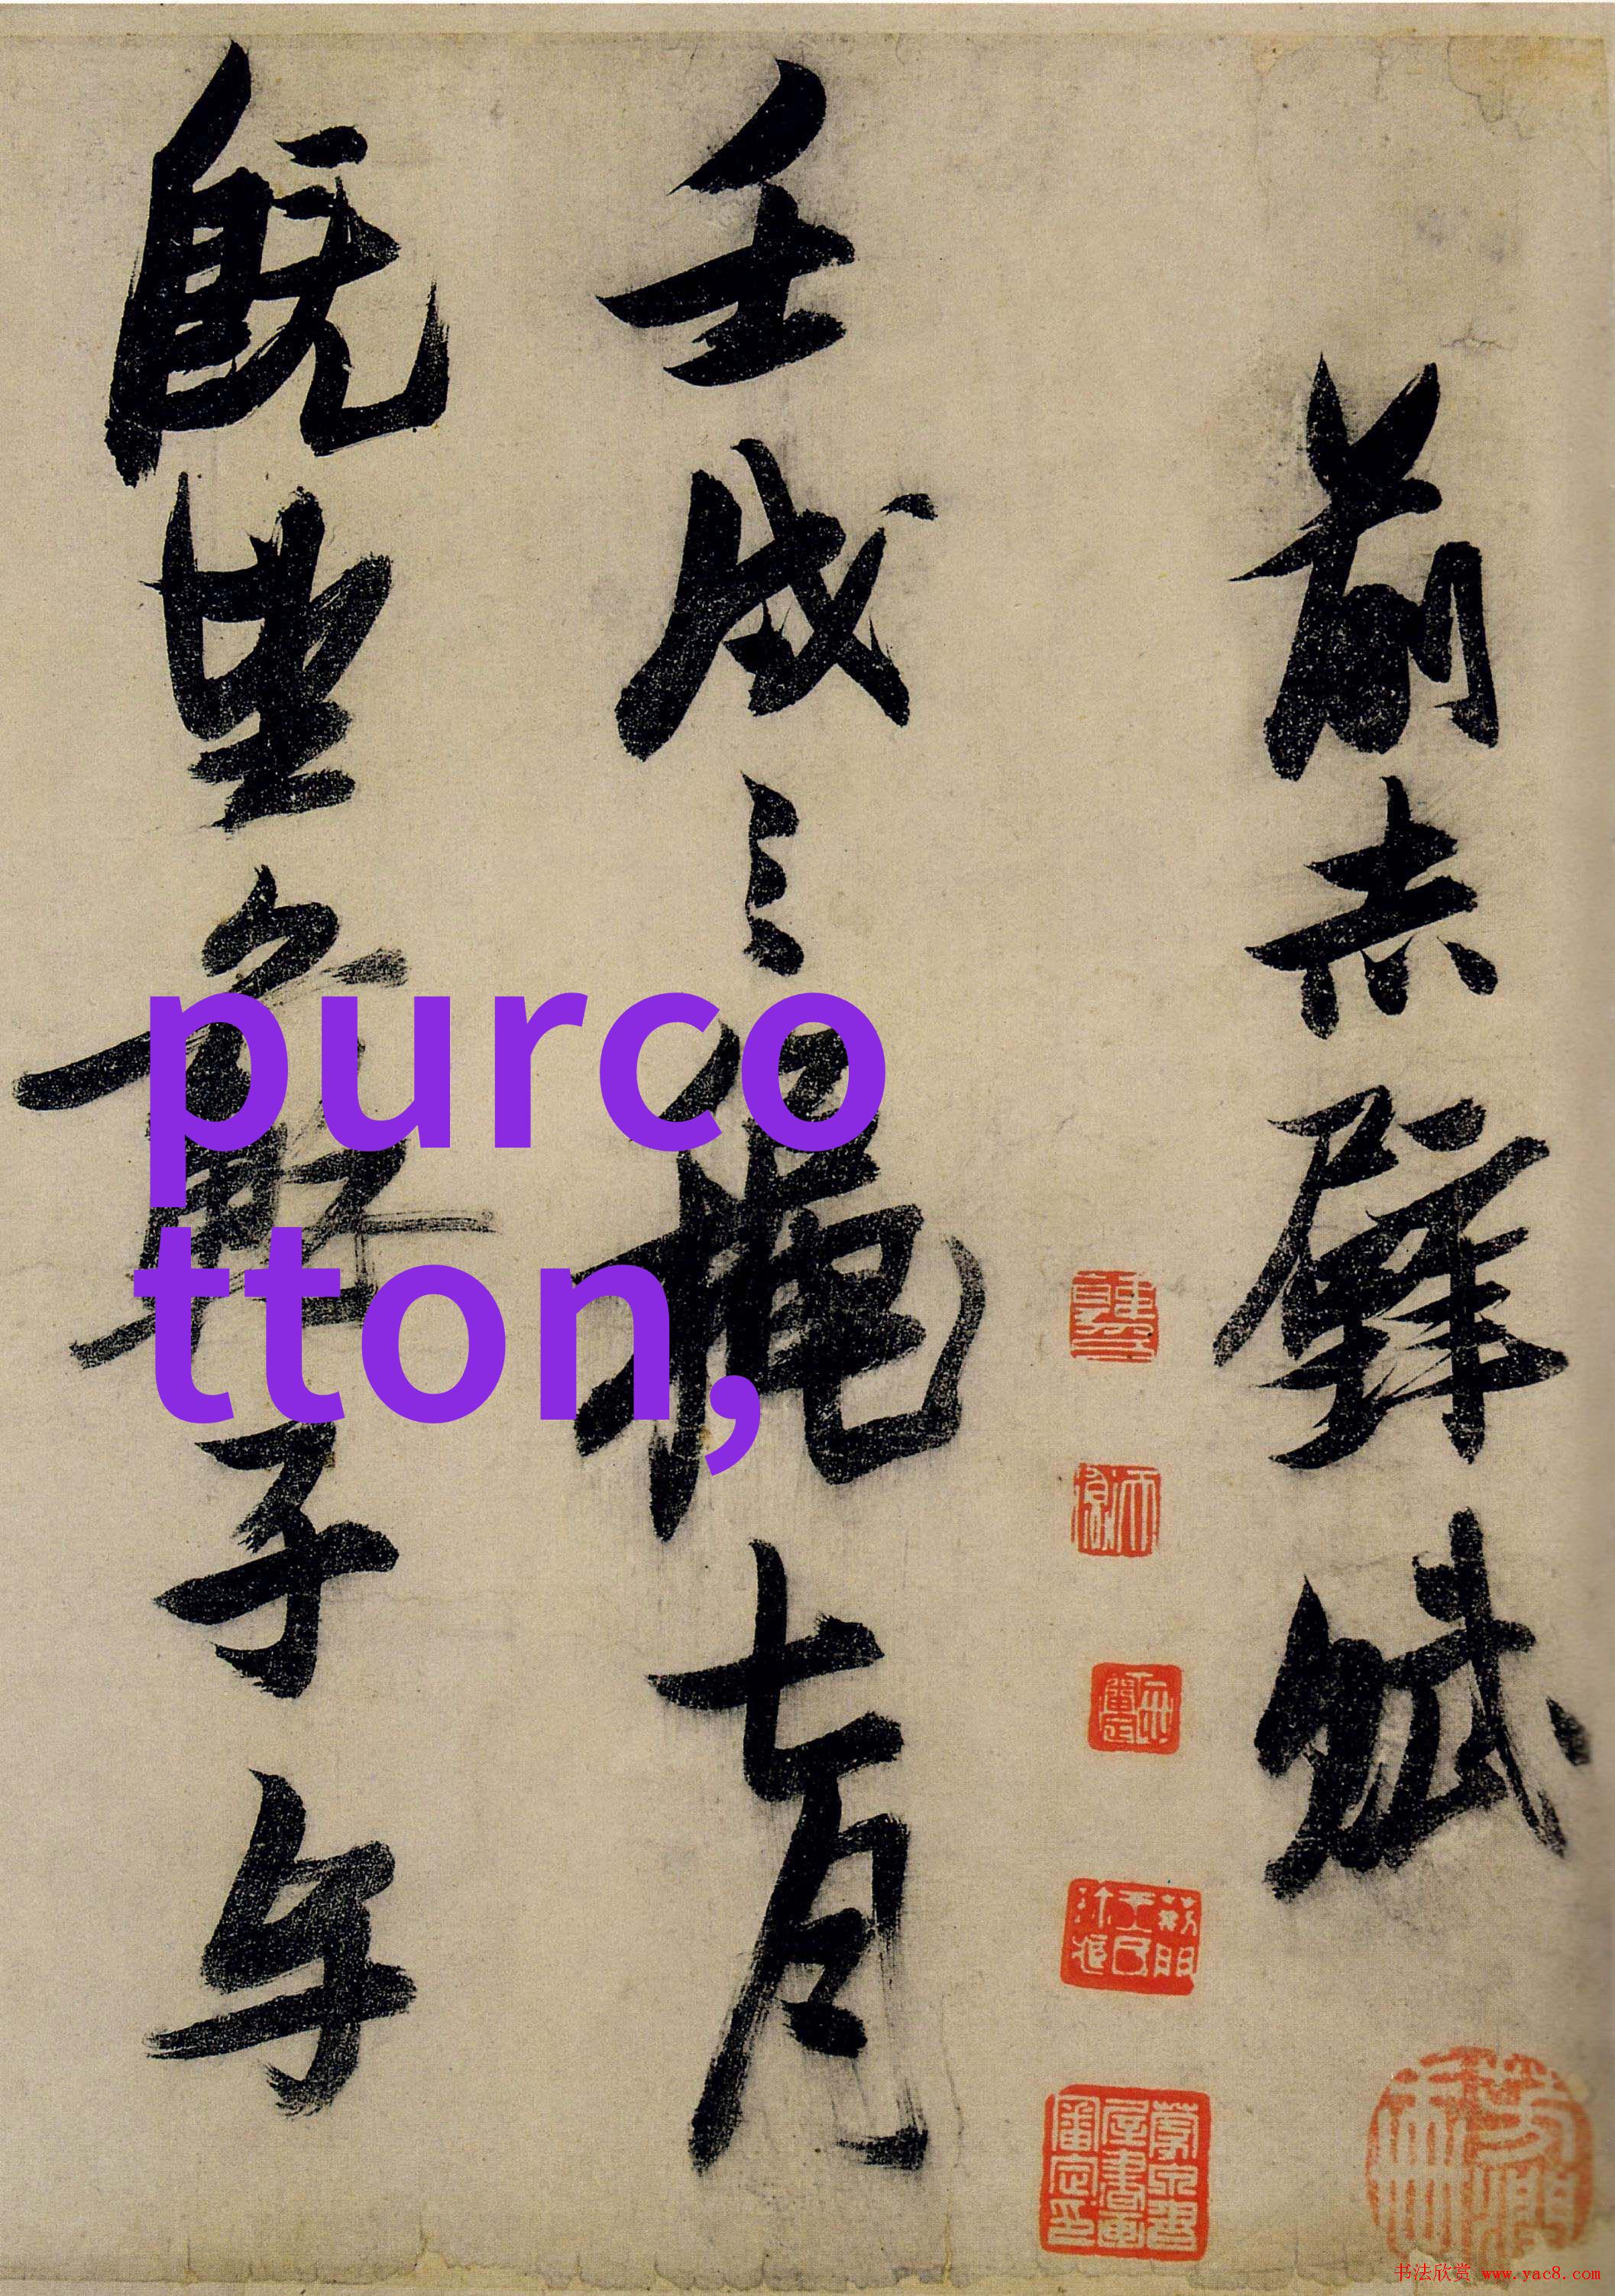 前赤壁賦
壬戌之穐七月
既望蘇子与
purco
tton,
书法欣赏 www.yac8.com